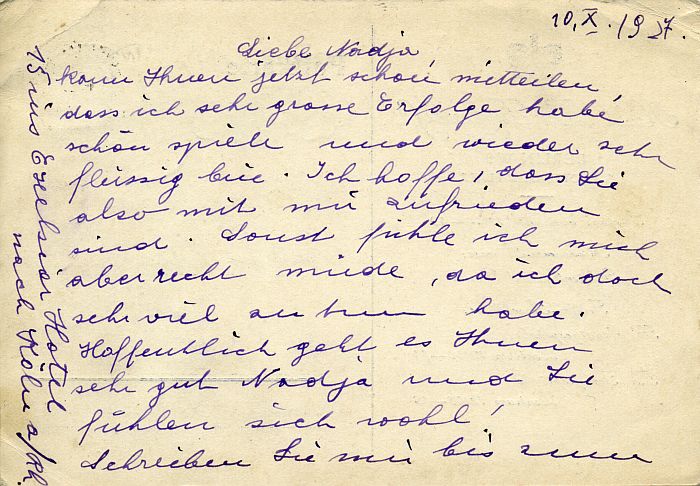 10. X. 1937.
Liebe Nadja
kann Ihnen jetzt schon mitteilen,
dass ich sehr grosse Erfolge habe
schön spiele und wieder sehr
fleissig bin. Ich hoffe, dass Sie
also mit mir zufrieden
sind. Sonst fühle ich mich
aber recht müde, da ich doch
sehr viel zu tun habe.
Hoffentlich geht es Ihnen
sehr gut Nadja und Sie
fühlen sich wohl!
Schreiben Sie mir bis zum
15 ins Exelsior Hotel
nach Köln a/Rh.